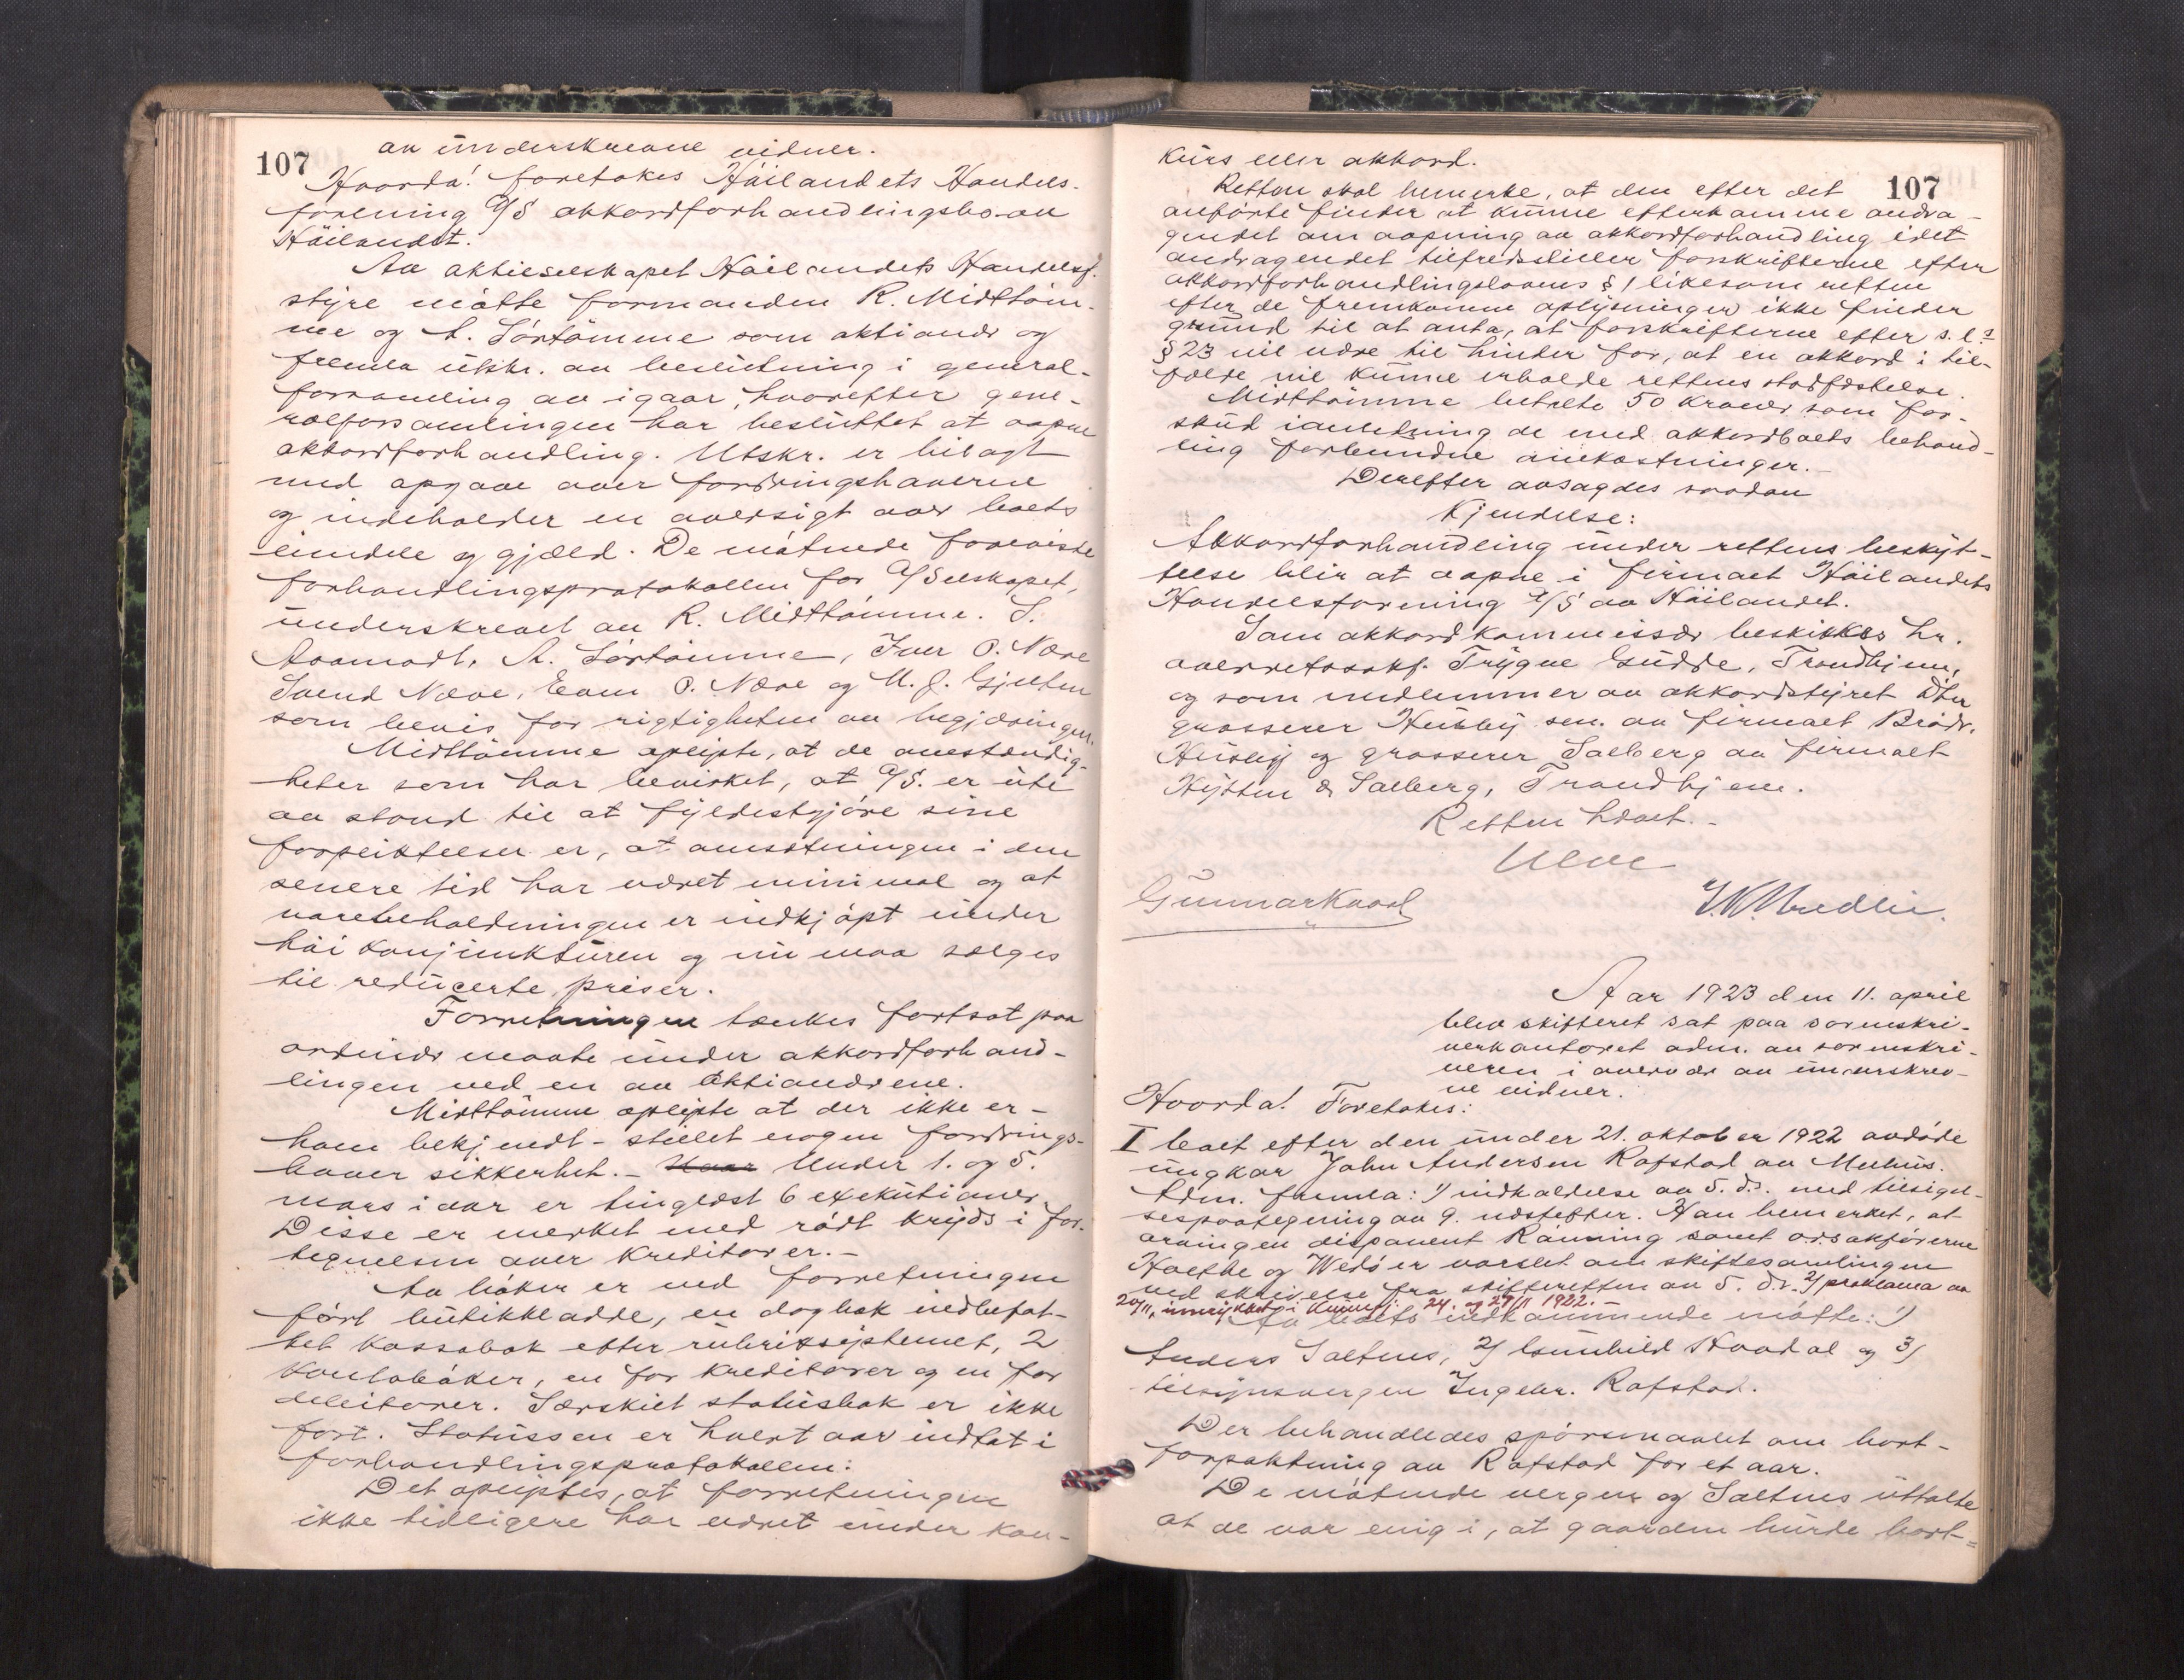 107
av underskrevne vidner.
Hvorda! foretokes Häilandets Handels-
forening A/S akkordforhandlingsbo av
Häilandet.
Av aktieselskapet Häilandets Handelsf.
styre møtte formanden R. Midttöm-
me og A. Sörtömme som aktionær og
fremla utskr. av beslutning i general-
forsamling av igaar, hvorefter gene-
ralforsamlingen har besluttet at aapne
akkordforhandling. Utskr. er bilagt
med opgave over fordringshaverne
og indeholder en oversigt over boets
eiendele og gjæld. De møtende foreviste
forhandlingsprotokollen for A/Selskapet,
underskrevet av R. Midttömme. S.
Aaamodt, A. Sörtömme, Iver O. Næve
Svend Næve, Even O. Næve og M. J. Gjelten
som bevis for rigtigheten av begjæringen.
Midttömme oplyste, at de omstændig-
heter som har bevirket, at A/S. er ute
av stand til at fyldestgjöre sine
forpliktelser er, at omsætningen i den
senere tid har været minimal og at
varebeholdningen er indkjöpt under
häi konjunkturen og nu maa sælges
til reducerte priser.
Forretningen tænkes fortsat paa
ordinær maate under akkordforhand-
lingen ved en av aktionærene.
Midttömme oplyste at der ikke er -
ham bekjendt - stillet nogen fordrings-
haver sikkerhet. - Under 1. og 5.
mars i aar er tinglæst 6 exekutioner
Disse er merket med rödt kryds i for-
tegnelsen over kreditorer. -
Av böker er ved forretningen
fört butikkladde, en dagbok indbefat-
tet kassabok efter rubriksystemet, 2
kontoböker, en for kreditorer og en for
debitorer. Særskilt statusbok er ikke
fört. Statussen er hvert aar indtat i
forhandlingsprotokollen:
Det oplystes, at forretningen
ikke tidligere har været under kon-
107
kurs eller akkord.
Retten skal bemerke, at den efter det
anförte finder at kunne efterkomme andra-
gendet om aapning av akkordforhandling idet
andragendet tilfredsstiller forskrifterne efter
akkordforhandlingslovens § 1 likesom retten
efter de fremkomne oplysninger ikke finder
grund til at anta, at forskrifterne efter s. l.s
§ 23 vil være til hinder for, at en akkord i til-
fælde vil kunne erholde rettens stadfæstelse.
Midttömme betalte 50 kroner som for-
skud ianledning de med akkordboets behand-
ling forbundne omkostninger. -
Derefter avsagdes saadan
Kjendelse:
Akkordforhandling under rettens beskyt-
telse blir at aapne i firmaet Häilandets
Handelsforening A/S av Häilandet.
Som akkordkommissær beskikkes hr.
overretssakf. Trygve Gudde, Trondhjem,
og som medlemmer av akkordstyret
grosserer Huseby sen. av firmaet Brödr.
Huseby og grosserer Salberg av firmaet
Kytten & Salberg, Trondhjem.
Retten hævet. -
Gunnar Kaal
Aar 1923 den 11. april
blev skifteret sat paa sorenskri-
verkontoret adm. av sorenskri-
veren i overvær av underskrev-
ne vidner.
Hvorda! Foretokes:
I boet efter den under 21. oktober 1922 avdöde
ungkar John Andersen Rofstad av Melhus.
Adm. fremla: 1) indkaldelse av 5. ds. med tilsigel-
sespaategning av 9. næstefter. Han bemerket, at
arvingen disponent Rönning samt o.r.sakförerne
Holthe og Wedö er varslet om skiftesamlingen
ved skrivelse fra skifteretten av 5. ds. 2) proklama av
20/11, innrykket i Kunngj. 24. og 27/11 1922.
Av boets vedkommende møtte: 1)
Anders Saltnes, 2) Gunhild Hovdal og 3)
tilsynsvergen Ingebr. Rofstad.
Der behandledes spörsmaalet om bort-
forpaktning av Rofstad for et aar.
De møtende vergen og Saltnes uttalte
at de var enig i, at gaarden burde bort-